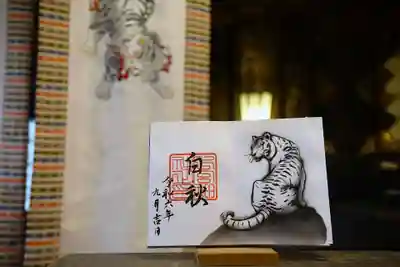 白秋
令和六年
九月吉日